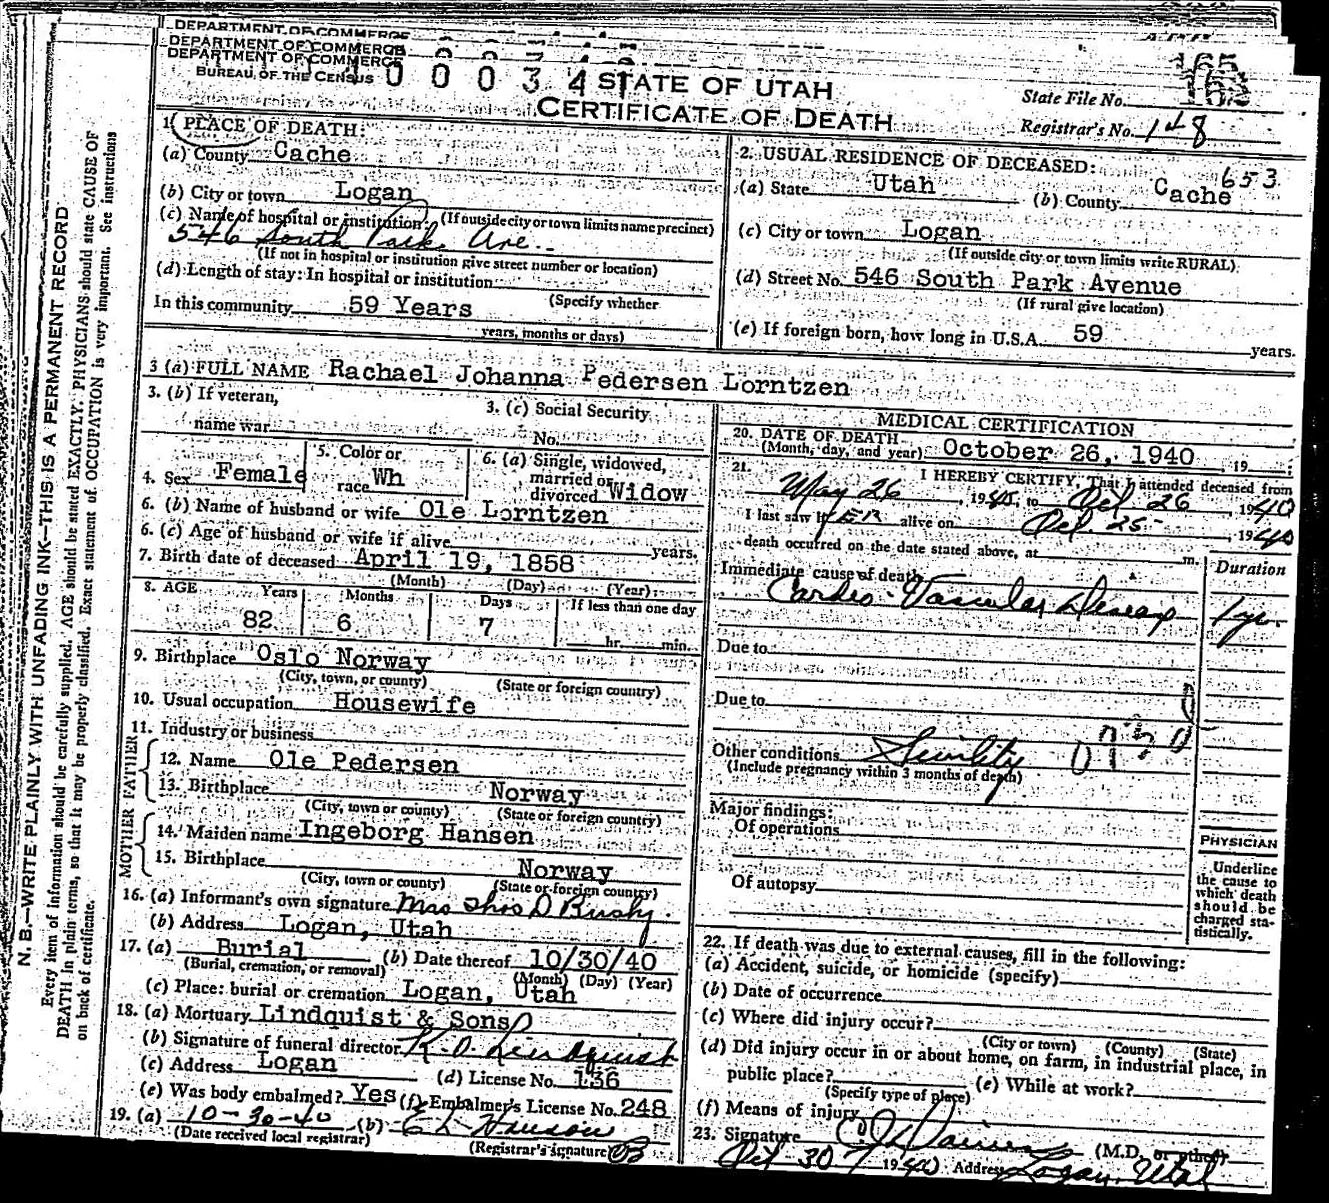 DEPARTMENT OF COMMERCE
DEPARTMENT OF COMMERCE
DEPARTMENT OF COMMERCE
BUREAU OF THE CENSUS
STATE OF UTAH
CERTIFICATE OF DEATH
State File No.
Registrar's No. 148
1. PLACE OF DEATH:
(a) County Cache
(b) City or town Logan
(c) Name of hospital or institution: (If outside city or town limits name precinct)
546 South Park Ave.
(If not in hospital or institution give street number or location)
(d) Length of stay: In hospital or institution
(Specify whether
In this community 59 Years
years, months or days)
2. USUAL RESIDENCE OF DECEASED:
653
(a) State Utah (b) County Cache
(c) City or town Logan
(If outside city or town limits write RURAL)
(d) Street No. 546 South Park Avenue
(If rural give location)
(e) If foreign born, how long in U.S.A. 59 years.
3 (a) FULL NAME Rachael Johanna Pedersen Lorntzen
3. (b) If veteran, name war
3. (c) Social Security No.
4. Sex Female
5. Color or race Wh
6. (a) Single, widowed, married or divorced Widow
6. (b) Name of husband or wife Ole Lorntzen
6. (c) Age of husband or wife if alive years.
7. Birth date of deceased April 19, 1858
(Month) (Day) (Year)
8. AGE Years Months Days If less than one day
82 6 7 hr. min.
9. Birthplace Oslo Norway
(City, town, or county) (State or foreign country)
10. Usual occupation Housewife
11. Industry or business
FATHER
12. Name Ole Pedersen
13. Birthplace Norway
(City, town or county) (State or foreign country)
MOTHER
14. Maiden name Ingeborg Hansen
15. Birthplace Norway
(City, town or county) (State or foreign country)
16. (a) Informant's own signature Mrs Thos D
(b) Address Logan, Utah
17. (a) Burial (b) Date thereof 10/30/40
(Burial, cremation, or removal) (Month) (Day) (Year)
(c) Place: burial or cremation Logan, Utah
18. (a) Mortuary Lindquist & Sons
(b) Signature of funeral director K. O. Lindquist
(c) Address Logan (d) License No. 136
(e) Was body embalmed? Yes (f) Embalmer's License No. 248
19. (a) 10-30-40 (b)
(Date received local registrar) (Registrar's signature)
MEDICAL CERTIFICATION
20. DATE OF DEATH
(Month, day, and year) October 26, 1940, 19
21. I HEREBY CERTIFY, That I attended deceased from
May 26, 1940, to Oct 26, 1940
I last saw hER alive on Oct 25, 1940
death occurred on the date stated above, at m.
Immediate cause of death Duration
Cardio-Vascular Disease 1 yr.
Due to
Due to
Other conditions Senility
(Include pregnancy within 3 months of death)
Major findings:
Of operations
Of autopsy
PHYSICIAN
Underline
the cause to
which death
should be
charged sta-
tistically.
22. If death was due to external causes, fill in the following:
(a) Accident, suicide, or homicide (specify)
(b) Date of occurrence
(c) Where did injury occur?
(City or town) (County) (State)
(d) Did injury occur in or about home, on farm, in industrial place, in
public place? (e) While at work?
(Specify type of place)
(f) Means of injury
23. Signature (M.D. or other)
Oct 30 1940 Address Logan, Utah
N. B.—WRITE PLAINLY WITH UNFADING INK—THIS IS A PERMANENT RECORD
Every item of information should be carefully supplied. AGE should be stated EXACTLY. PHYSICIANS should state CAUSE OF
DEATH in plain terms, so that it may be properly classified. Exact statement of OCCUPATION is very important. See instructions
on back of certificate.